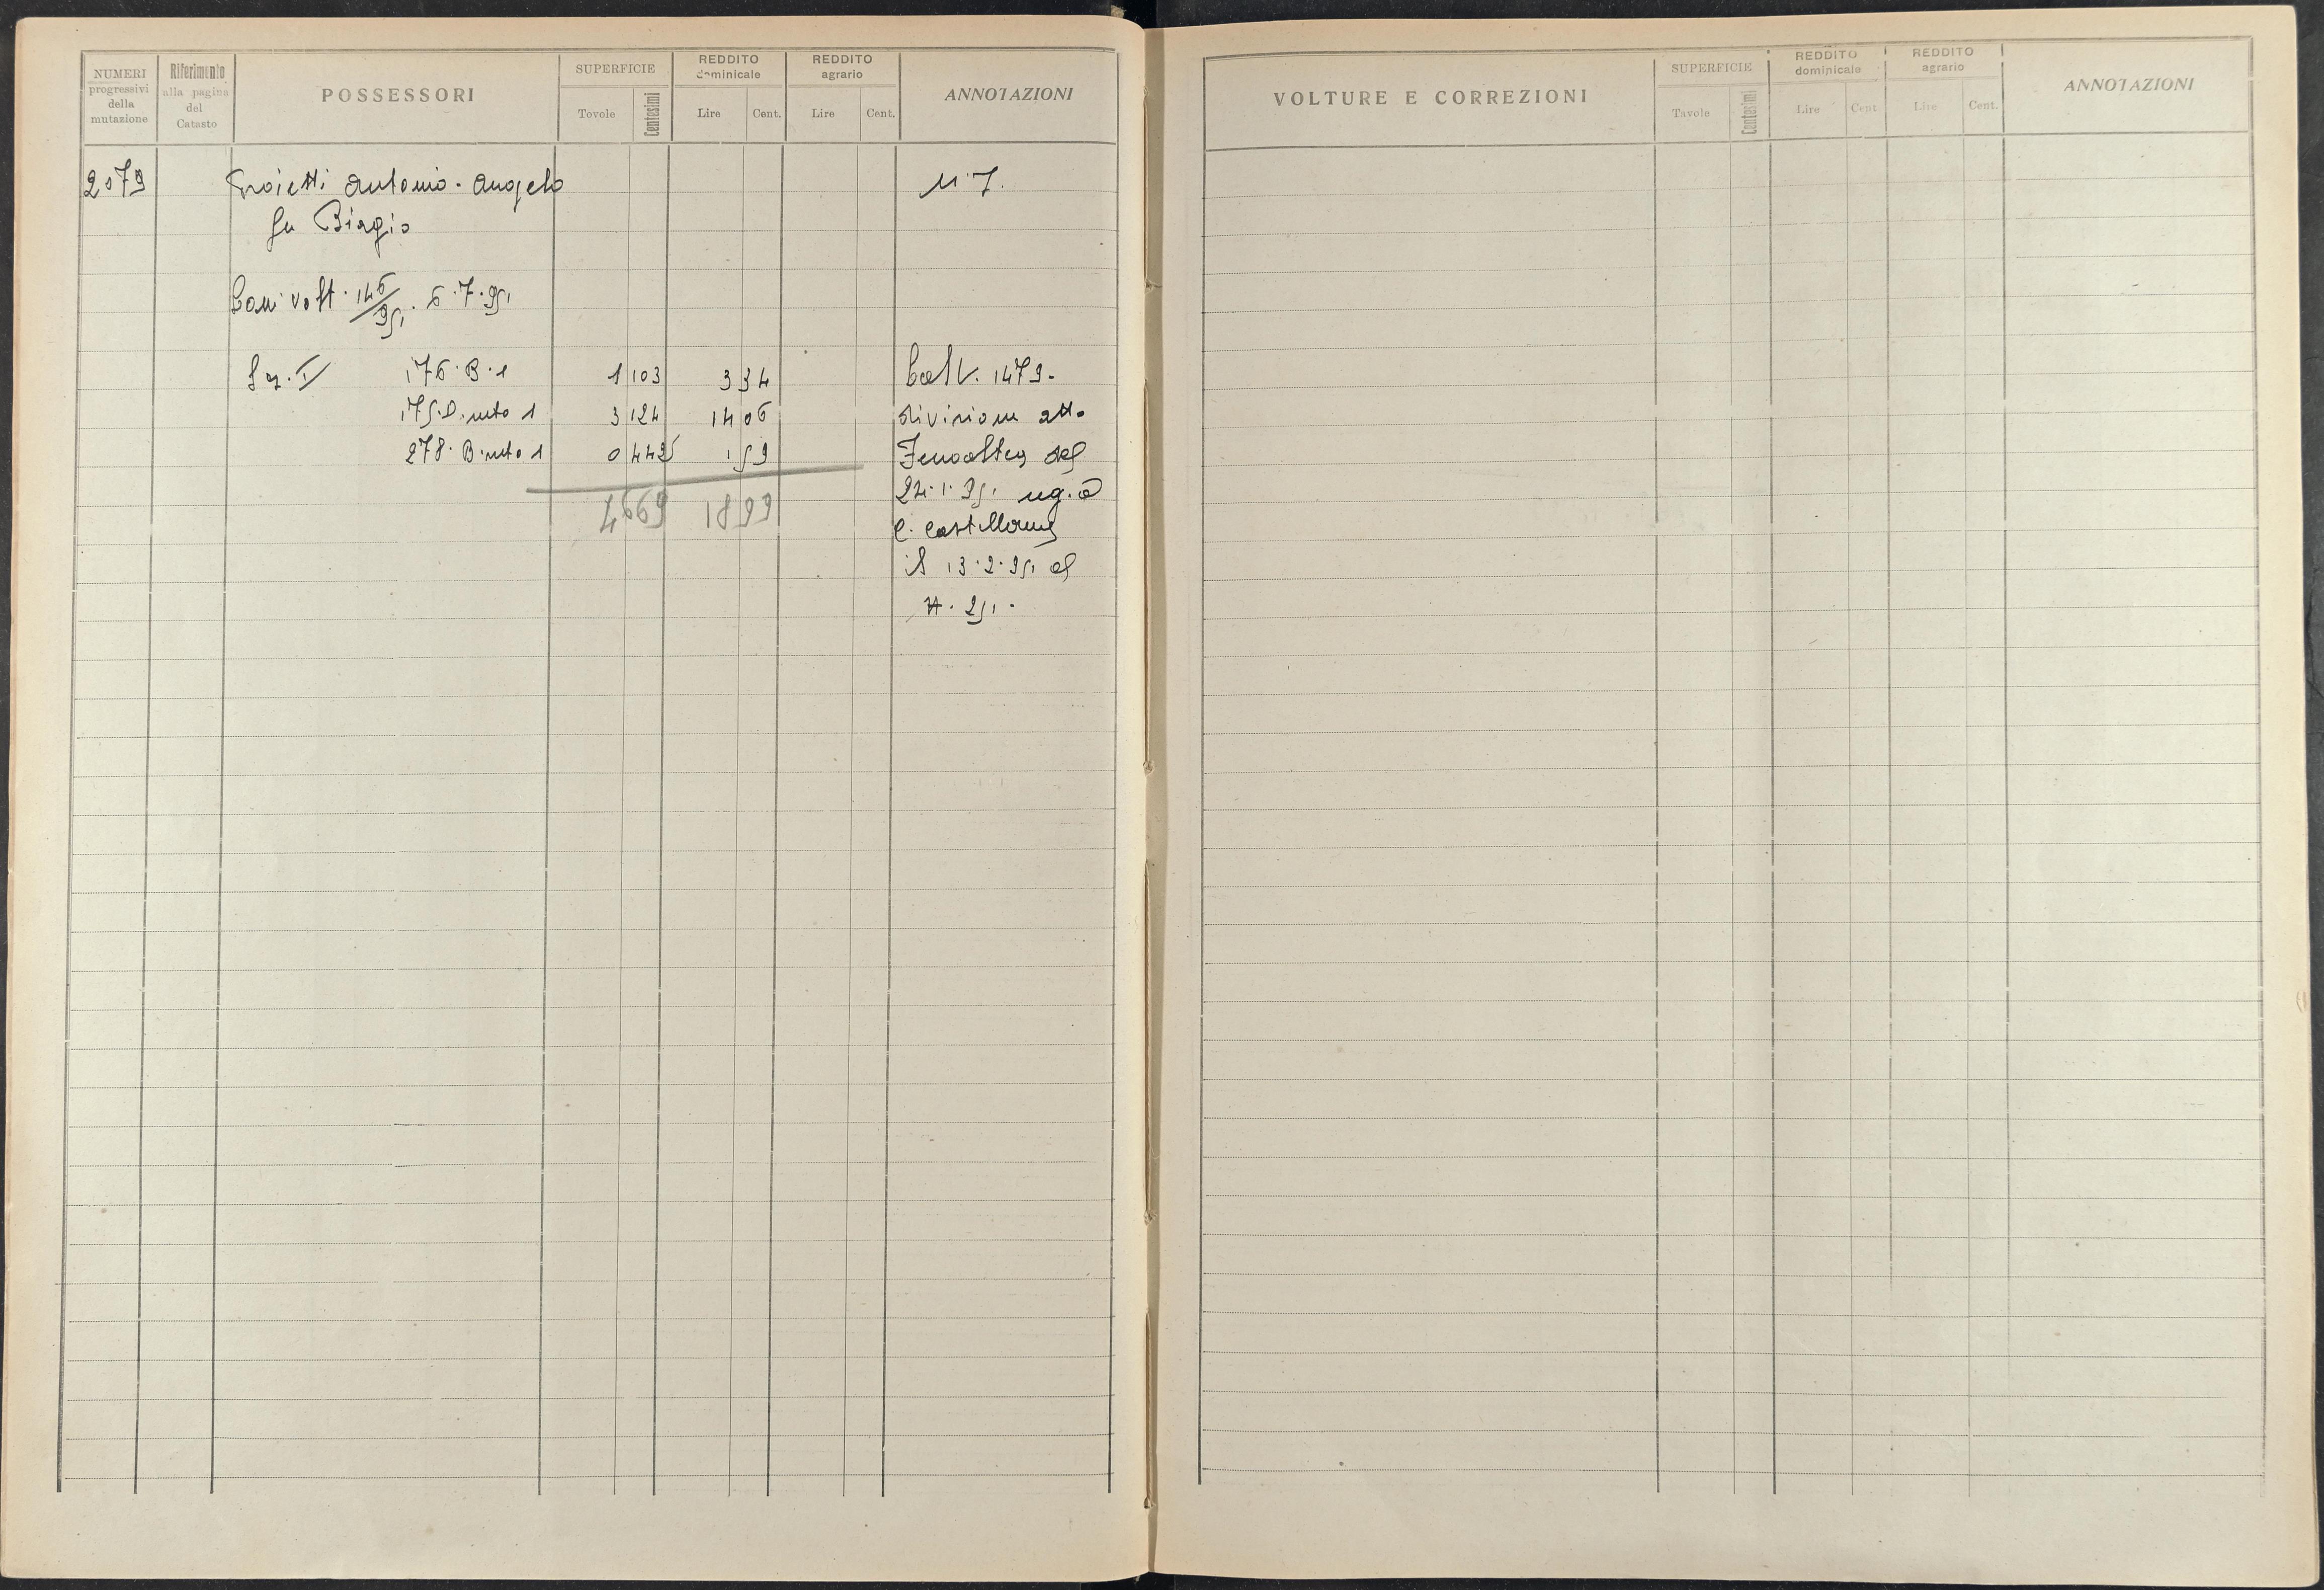 NUMERI progressivi della mutazione
Riferimento alla pagina del Catasto
POSSESSORI
SUPERFICIE
Tovole
Centesimi
REDDITO dominicale
Lire
Cent.
REDDITO agrario
Lire
Cent.
ANNOTAZIONI
2079 Proietti Antonio-Angelo N 7.
fu Biagio
Con volt. 146/951. 6.7.951
Sz. I 176.B.1 1 103 3 34 Da V. 1479.
175.D.rato 1 3 124 14 06 divisione atto
278.B.rato 1 0 442 1 59 Fenoaltea del
4669 1899 24.1.951 reg. a
C. Castellana
il 13.2.951 al
N. 251.
VOLTURE E CORREZIONI
SUPERFICIE
Tavole
Centesimi
REDDITO dominicale
Lire
Cent
REDDITO agrario
Lire
Cent.
ANNOTAZIONI